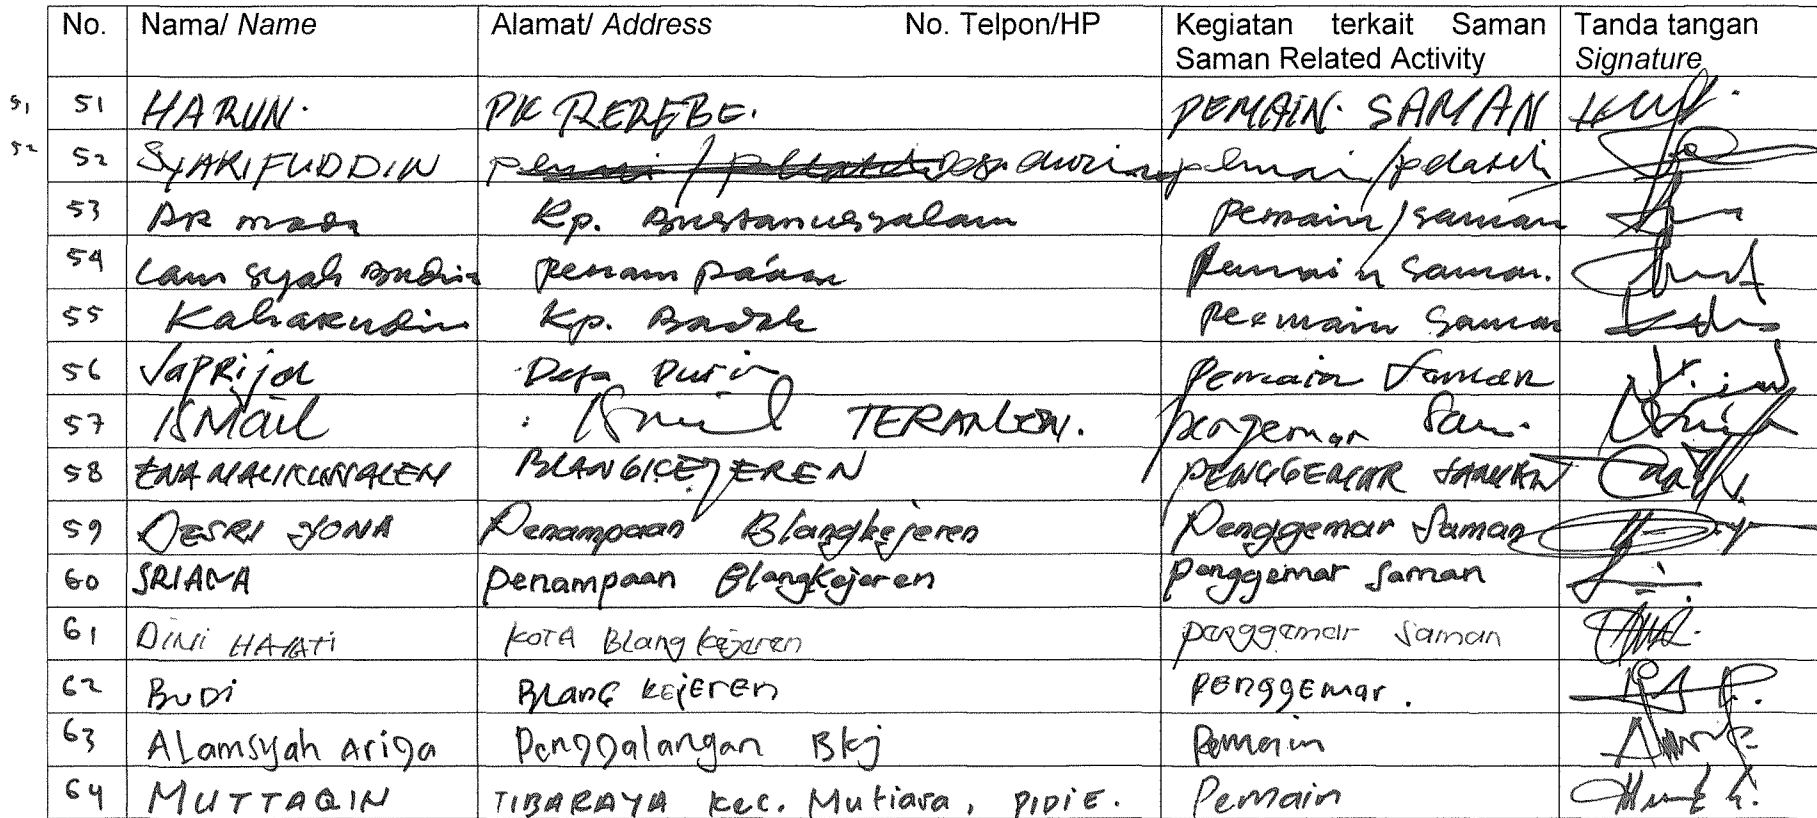 No. Nama/ Name Alamat/ Address No. Telpon/HP Kegiatan terkait Saman Tanda tangan
Saman Related Activity Signature
51 51 HARUN. PK REREBE. PEMAIN. SAMAN
52 52 SYARIFUDDIN Desa during pemain/pelatih
53 Kp. Bustanussalam Pemain/saman
54 syah penampaan Pemain saman.
55 Kaharudin Kp. Badak Pemain Saman
56 Japrijal Desa Durin Pemain Saman
57 ISMAIL : TERANGON. penggemar Sam.
58 BLANGKEJEREN PENGGEMAR SAMAN
59 DESRI YONA Penampaan Blangkejeren Penggemar Saman
60 SRIANA penampaan Blangkejeren penggemar saman
61 DINI HAYATI KOTA Blangkejeren penggemar saman
62 BUDI BLANG KEJEREN penggemar.
63 ALamsyah Ariga Penggalangan Bkj Pemain
64 MUTTAQIN TIBARAYA Kec. Mutiara, PIDIE. Pemain